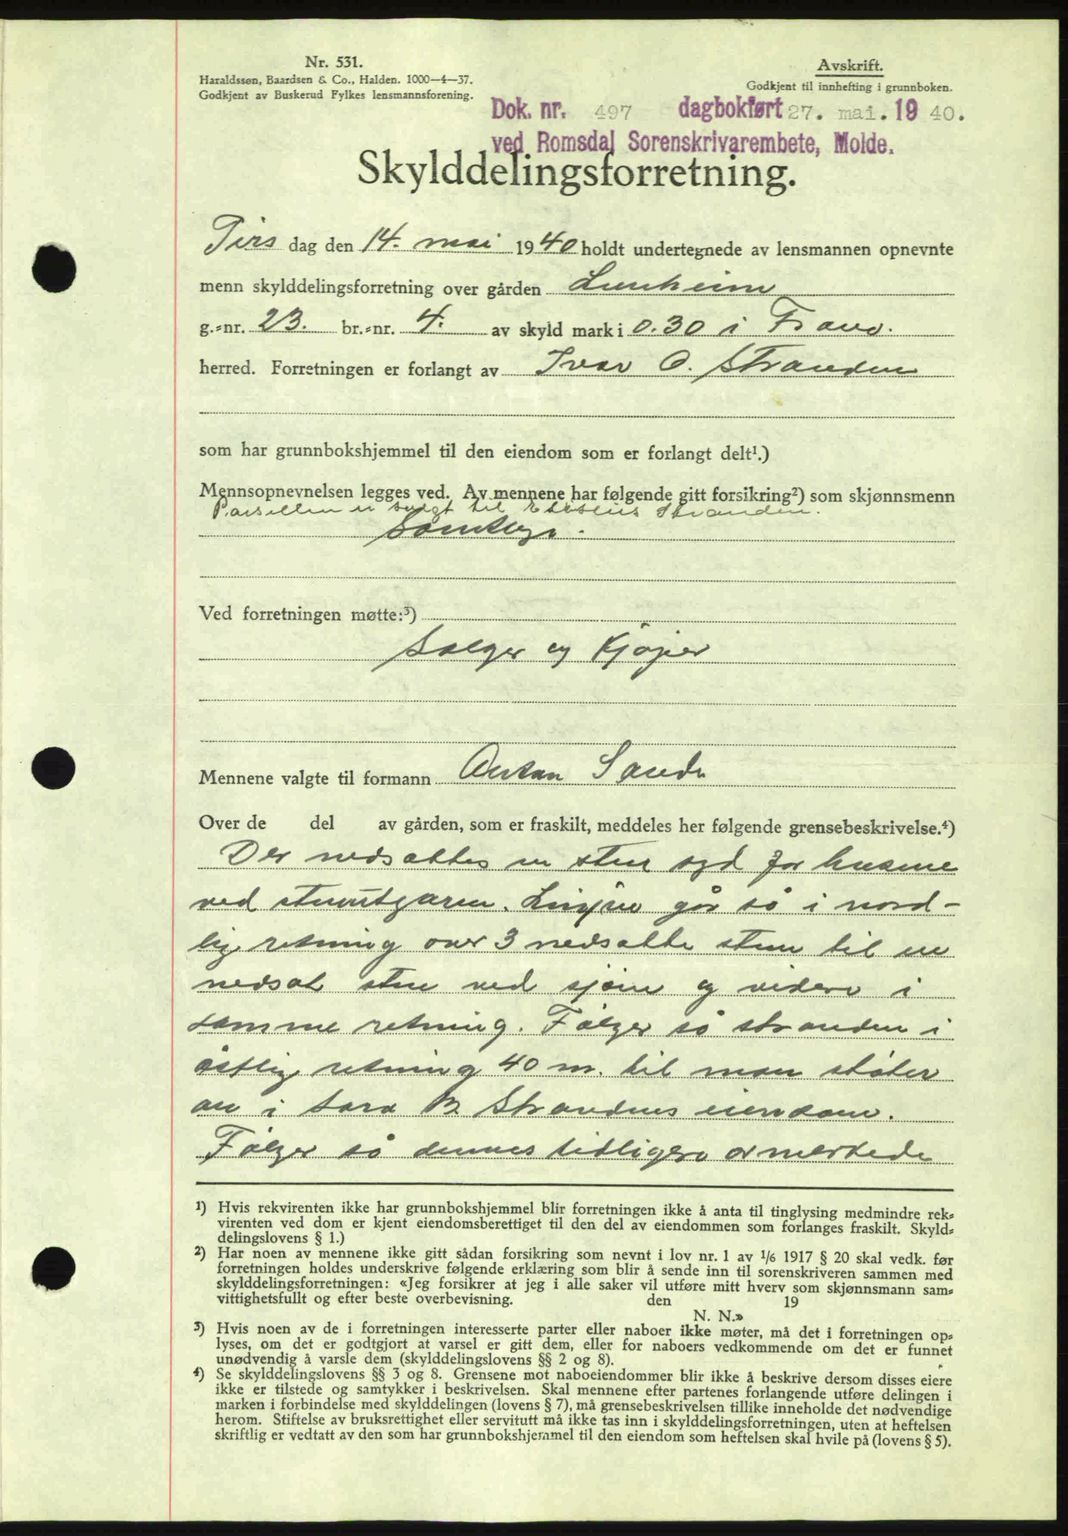 Nr. 531.
Haraldssøn, Baardsen & Co., Halden. 1000—4—37.
Godkjent av Buskerud Fylkes lensmannsforening.
Avskrift.
Godkjent til innhefting i grunnboken.
Dok. nr. 497 dagbokført 27. mai. 1940.
ved Romsdal Sorenskrivarembete, Molde.
Skylddelingsforretning.
Tirs dag den 14. mai 1940 holdt undertegnede av lensmannen opnevnte
menn skylddelingsforretning over gården Lunheim
g.=nr. 23. br.=nr. 4. av skyld mark i 0.30 i Fræno.
herred. Forretningen er forlangt av Ivar O. Stranden
som har grunnbokshjemmel til den eiendom som er forlangt delt¹.)
Mennsopnevnelsen legges ved. Av mennene har følgende gitt forsikring²) som skjønnsmenn
Parsellen er solgt til Stranden.
Samtlige.
Ved forretningen møtte:³)
Selger og Kjøper
Mennene valgte til formann Anton Sande
Over de del av gården, som er fraskilt, meddeles her følgende grensebeskrivelse.⁴)
Der nedsattes en sten syd for husene
ved stenutgaren. Linjen går så i nord-
lig retning over 3 nedsatte stene til en
nedsat sten ved sjøen og videre i
samme retning. Følger så stranden i
østlig retning 40 m. til man støter
an i Lars B. Strandens eiendom.
Følger så dennes tidligere opmerkede
¹) Hvis rekvirenten ikke har grunnbokshjemmel blir forretningen ikke å anta til tinglysing medmindre rek=
virenten ved dom er kjent eiendomsberettiget til den del av eiendommen som forlanges fraskilt. Skyld=
delingslovens § 1.)
²) Har noen av mennene ikke gitt sådan forsikring som nevnt i lov nr. 1 av 1/6 1917 § 20 skal vedk. før
forretningen holdes underskrive følgende erklæring som blir å sende inn til sorenskriveren sammen med
skylddelingsforretningen: «Jeg forsikrer at jeg i alle saker vil utføre mitt hverv som skjønnsmann sam=
vittighetsfullt og efter beste overbevisning. den 19
N. N.»
³) Hvis noen av de i forretningen interesserte parter eller naboer ikke møter, må det i forretningen op=
lyses, om det er godtgjort at varsel er gitt dem, eller for naboers vedkommende om det er funnet
unødvendig å varsle dem (skylddelingslovens §§ 2 og 8).
⁴) Se skylddelingslovens §§ 3 og 8. Grensene mot naboeiendommer blir ikke å beskrive dersom disses eiere
ikke er tilstede og samtykker i beskrivelsen. Skal mennene efter partenes forlangende utføre delingen i
marken i forbindelse med skylddelingen (lovens § 7), må grensebeskrivelsen tillike inneholde det nødvendige
herom. Stiftelse av bruksrettighet eller servitutt må ikke tas inn i skylddelingsforretningen, uten at heftelsen
skriftlig er vedtatt av den som har grunnbokshjemmel til den eiendom som heftelsen skal hvile på (lovens § 5).